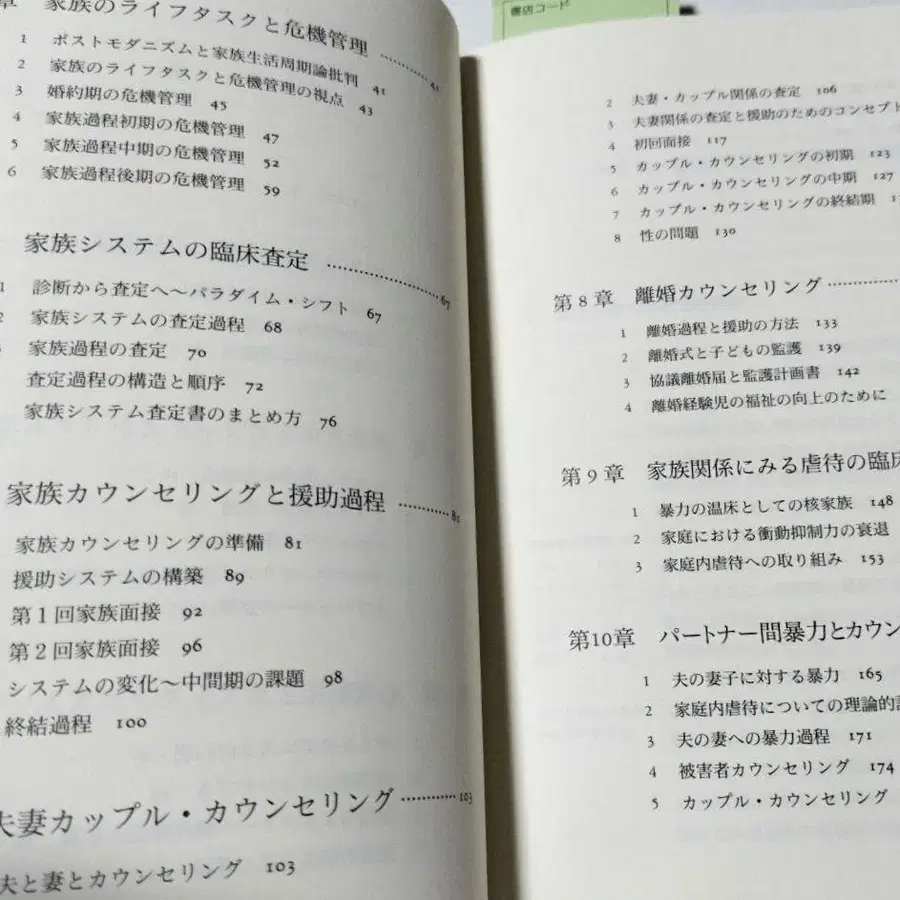 章 家族のライフタスクと危機管理 41
1 ポストモダニズムと家族生活周期論批判 41
2 家族のライフタスクと危機管理の視点 43
3 婚約期の危機管理 45
4 家族過程初期の危機管理 47
5 家族過程中期の危機管理 52
6 家族過程後期の危機管理 59
家族システムの臨床査定 67
1 診断から査定へ〜パラダイム・シフト 67
2 家族システムの査定過程 68
家族過程の査定 70
査定過程の構造と順序 72
家族システム査定書のまとめ方 76
家族カウンセリングと援助過程 81
家族カウンセリングの準備 81
援助システムの構築 89
第1回家族面接 92
第2回家族面接 96
システムの変化〜中間期の課題 98
終結過程 100
夫妻カップル・カウンセリング 103
夫と妻とカウンセリング 103
書店コード
2 夫妻・カップル関係の査定 106
3 夫妻関係の査定と援助のためのコンセプト
4 初回面接 117
5 カップル・カウンセリングの初期 123
6 カップル・カウンセリングの中期 127
7 カップル・カウンセリングの終結期
8 性の問題 130
第8章 離婚カウンセリング
1 離婚過程と援助の方法 133
2 離婚式と子どもの監護 139
3 協議離婚届と監護計画書 142
4 離婚経験児の福祉の向上のために
第9章 家族関係にみる虐待の臨床
1 暴力の温床としての核家族 148
2 家庭における衝動抑制力の衰退
3 家庭内虐待への取り組み 153
第10章 パートナー間暴力とカウン
1 夫の妻子に対する暴力 165
2 家庭内虐待についての理論的
3 夫の妻への暴力過程 171
4 被害者カウンセリング 174
5 カップル・カウンセリング